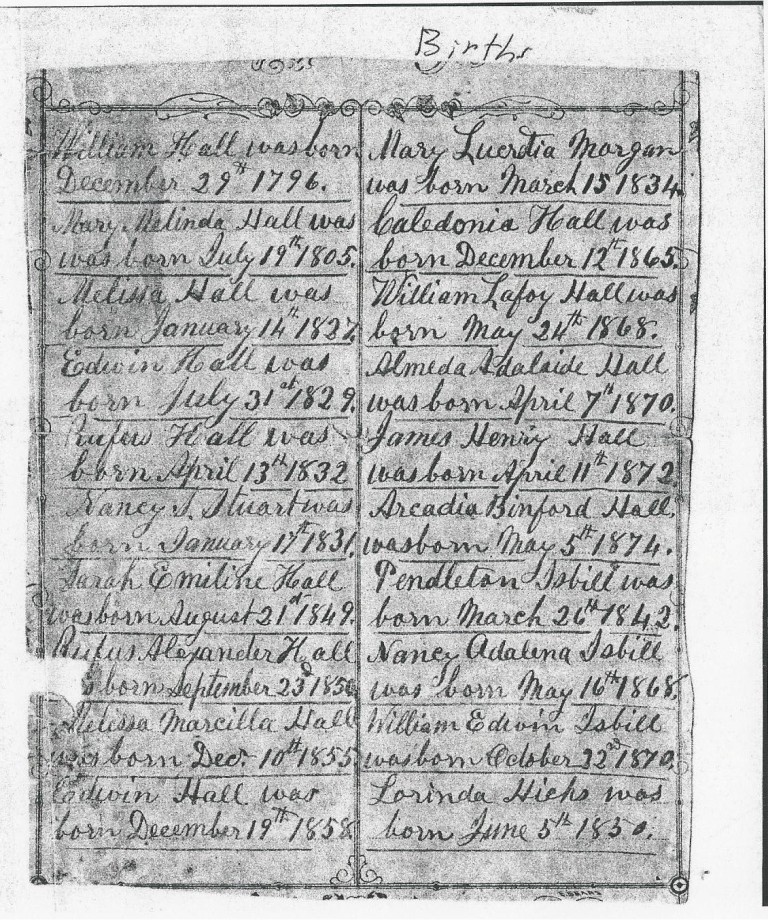 Births
William Hall was born
December 29th 1796.
Mary Melinda Hall was
was born July 19th 1805.
Melissa Hall was
born January 14th 1827
Edwin Hall was
born July 31st 1829.
Rufus Hall was
born April 13th 1832
Nancy J. Stuart was
born January 17th 1831.
Sarah Emiline Hall
was born August 21st 1849.
Rufus Alexander Hall
born September 23d
Melissa Marcilla Hall
was born Dec. 10th 1855
Edwin Hall was
born December 19th 1858
Mary Lucretia Morgan
was born March 15 1834
Caledonia Hall was
born December 12th 1865.
William Lafoy Hall was
born May 24th 1868.
Almeda Adalaide Hall
was born April 7th 1870.
James Henry Hall
was born April 11th 1872.
Arcadia Binford Hall
was born May 5th 1874.
Pendleton Isbill was
born March 26th 1842.
Nancy Adalina Isbill
was born May 16th 1868.
William Edwin Isbill
was born October 22nd 1870.
Lorinda Hicks was
born June 5th 1850.